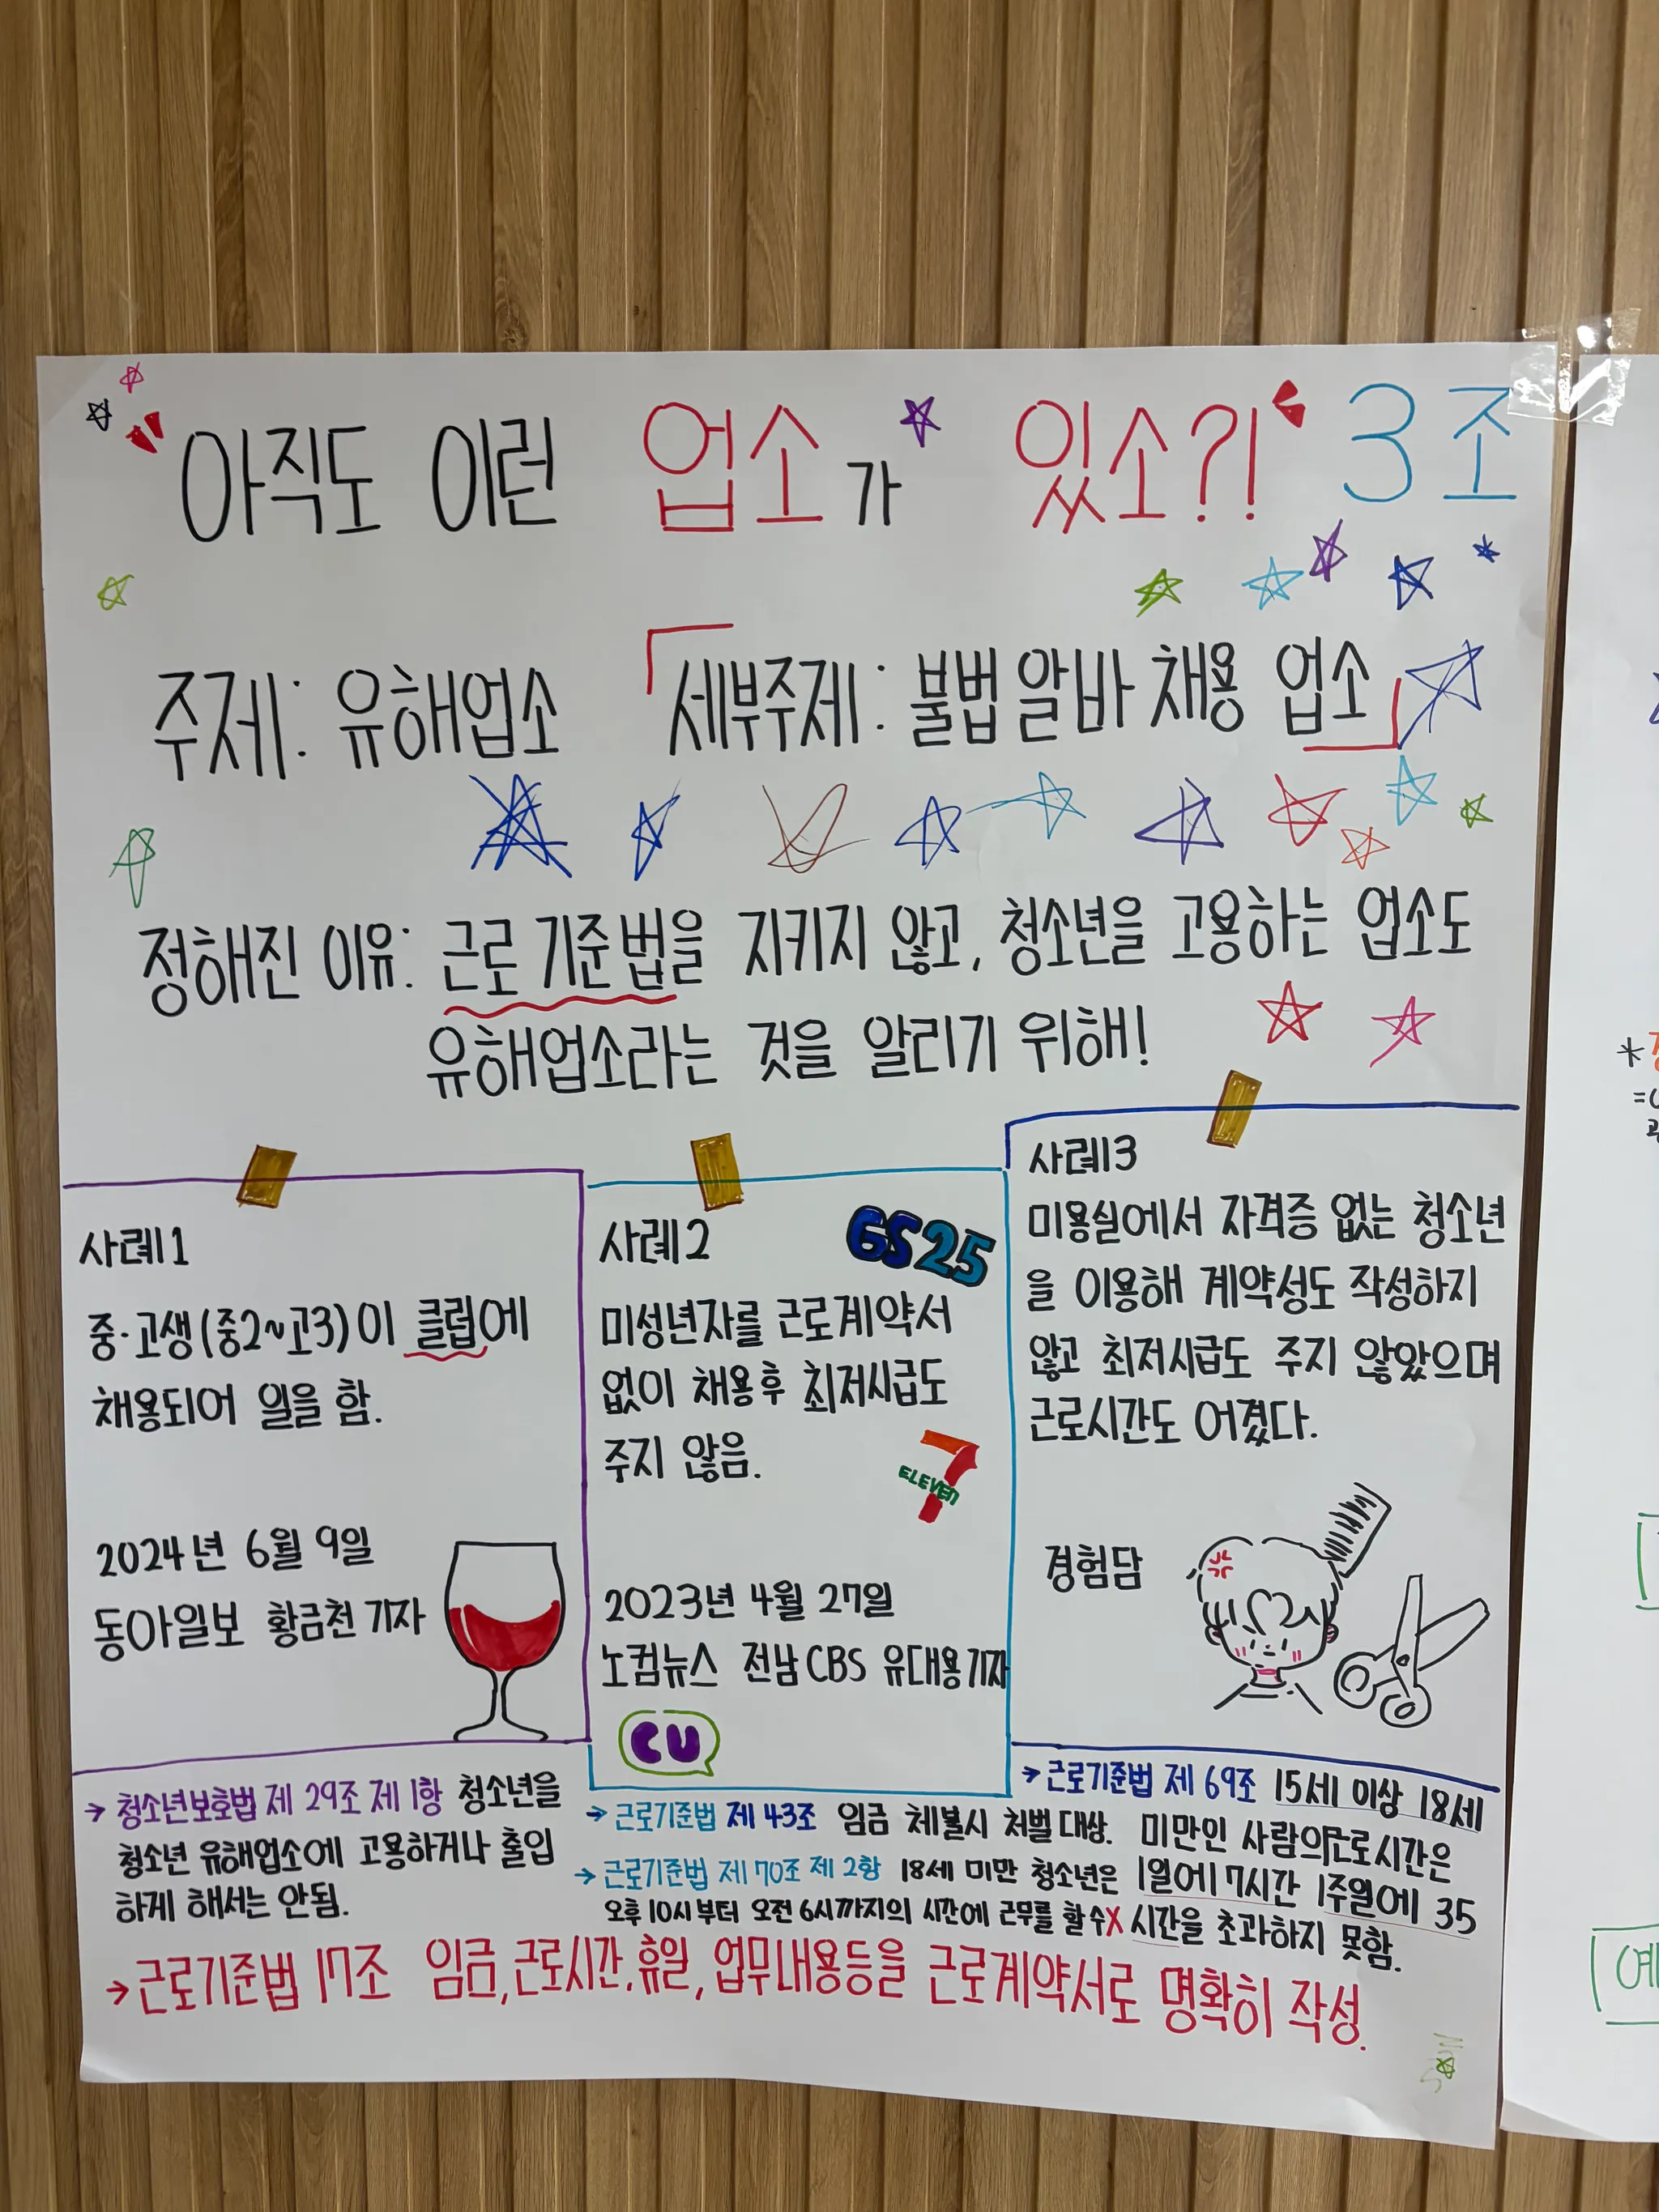 아직도 이런 업소가 있소?! 3조
주제: 유해업소 「세부주제: 불법 알바 채용 업소」
정해진 이유: 근로 기준법을 지키지 않고, 청소년을 고용하는 업소도
유해업소라는 것을 알리기 위해!
사례1
중·고생(중2~고3)이 클럽에
채용되어 일을 함.
2024년 6월 9일
동아일보 황금천 기자
→ 청소년보호법 제 29조 제 1항 청소년을
청소년 유해업소에 고용하거나 출입
하게 해서는 안됨.
사례2
GS25
미성년자를 근로계약서
없이 채용후 최저시급도
주지 않음.
7
ELEVEn
2023년 4월 27일
노컷뉴스 전남CBS 유대용기자
CU
→ 근로기준법 제 43조 임금 체불시 처벌 대상.
→ 근로기준법 제 70조 제 2항 18세 미만 청소년은
오후 10시부터 오전 6시까지의 시간에 근무를 할수X
사례3
미용실에서 자격증 없는 청소년
을 이용해 계약성도 작성하지
않고 최저시급도 주지 않았으며
근로시간도 어겼다.
경험담
→ 근로기준법 제 69조 15세 이상 18세
미만인 사람의근로시간은
1일에 7시간 1주일에 35
시간을 초과하지 못함.
→ 근로기준법 17조 임금,근로시간,휴일,업무내용등을 근로계약서로 명확히 작성.